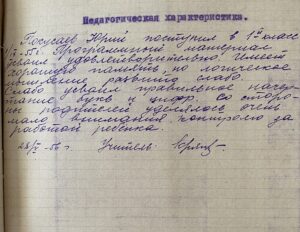 Педагогическая характеристика.
Посусаев Юрий поступил в 1й класс
1/IX-55г. Программный материал
усвоил удовлетворительно. Имеет
хорошую память, но логическое
мышление развито слабо.
Слабо усвоил правильное начер-
тание букв и цифр. Со сторо-
ны родителей уделялось очен
мало внимания контролю за
работой ребенка.
28/V-56г. Учитель: